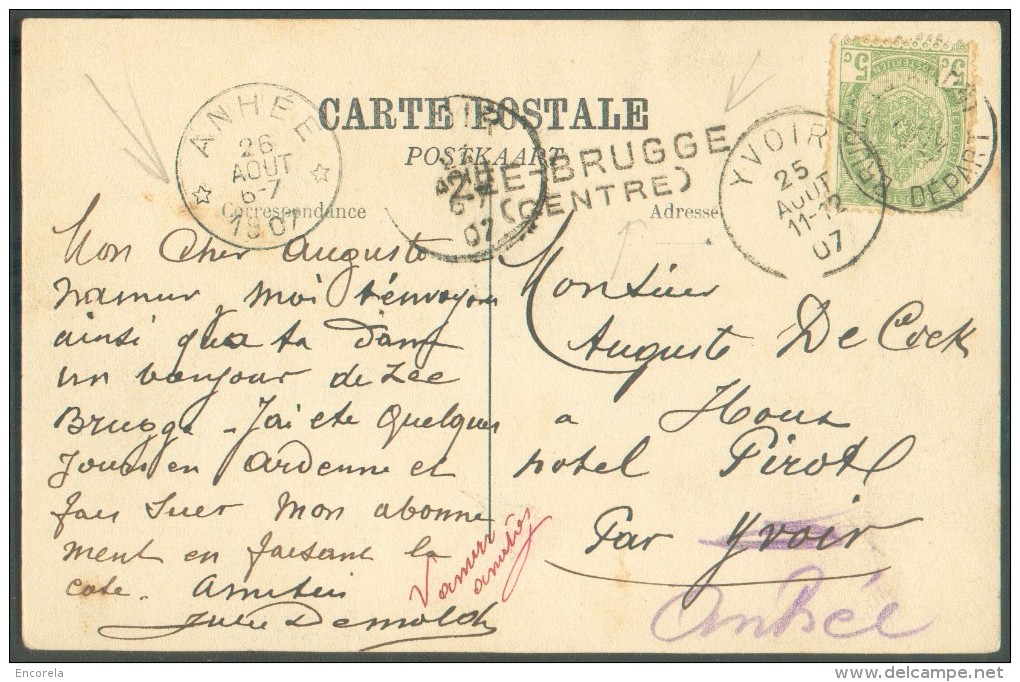 CARTE POSTALE
POSTKAART
Correspondance
Adresse
ANHÉE
26
AOUT
6-7
1907
ZEE-BRUGGE
(CENTRE)
YVOIR
25
AOUT
11-12
07
07
5 c
c 5
DEPART
Mon Cher Auguste
Namur, moi t'envoyon
ainsi qu'a ta Dame
un bonjour de Zee
Brugge - J'ai ete quelques
Jours en Ardenne et
fais suer Mon abonne
ment en faisant la
cote. Amities
Jules Demolder
Monsieur
Auguste De Cock
a Houx
hotel Pirot
Par Yvoir
Anhée
amitiés
Encorela
delcampe.net